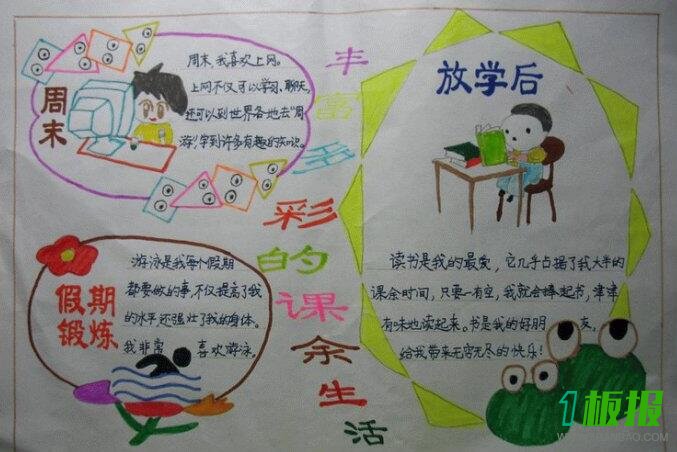 丰富多彩的课余生活
周末
周末,我喜欢上网。
上网不仅可以学习、聊天,
还可以到世界各地去“周
游”,学到许多有趣的知识。
假期
锻炼
游泳是我每个假期
都要做的事,不仅提高了我
的水平还强壮了我的身体。
我非常喜欢游泳。
放学后
读书是我的最爱,它几乎占据了我大半的
课余时间,只要一有空,我就会捧起书,津津
有味地读起来。书是我的好朋友,
给我带来无穷无尽的快乐!
1板报